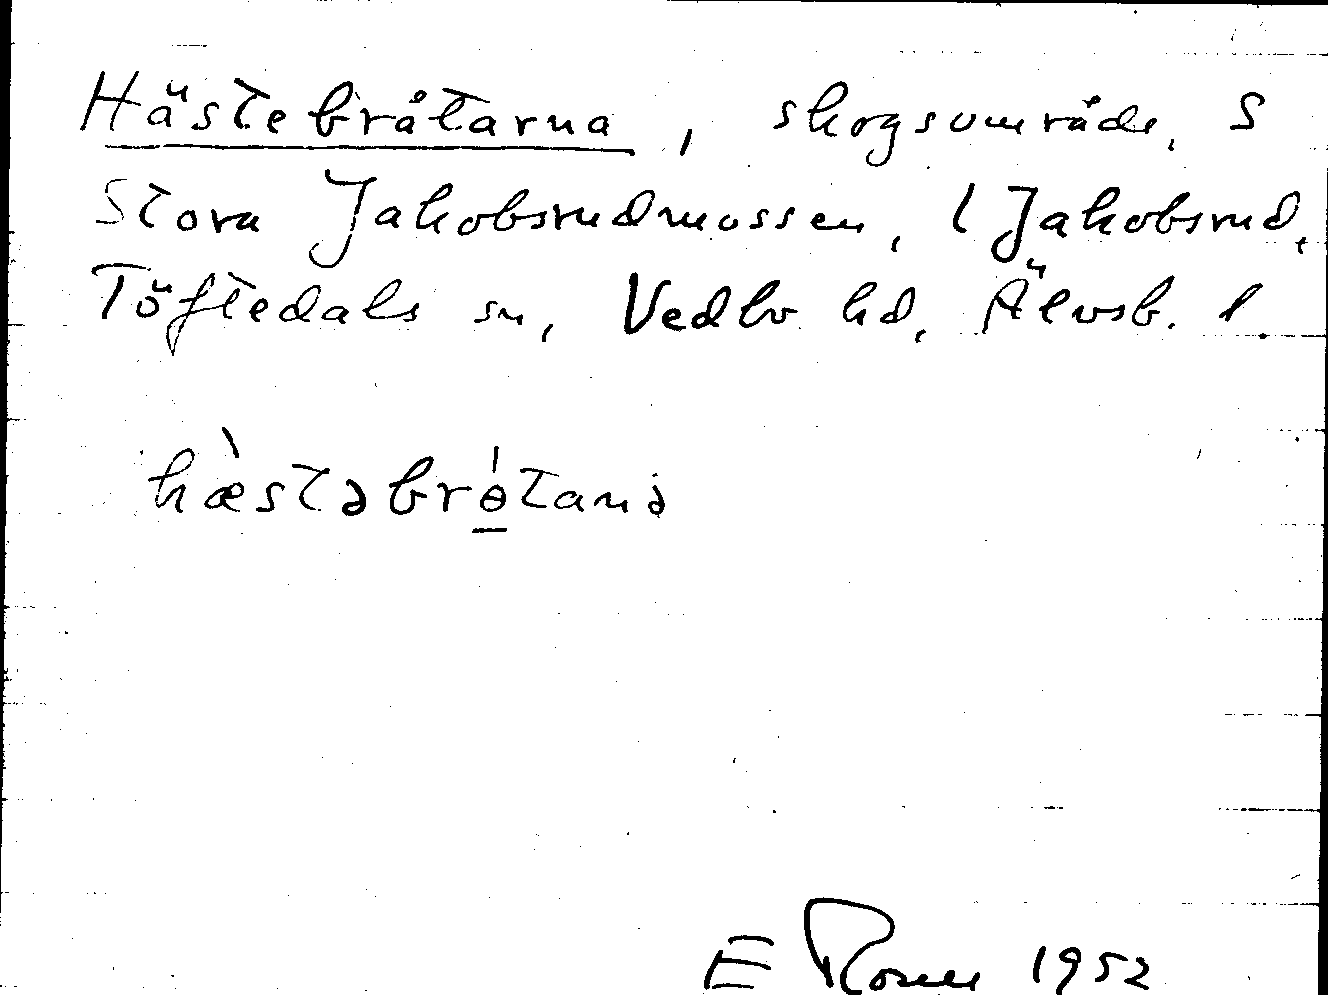 Hästebråtarna, skogsområde, S
Stora Jakobsrudmossen, l Jakobsrud,
Töftedals sn, Vedbo hd, Älvsb. l.
hæ̀stəbrɵ̠́tanə
E 1952